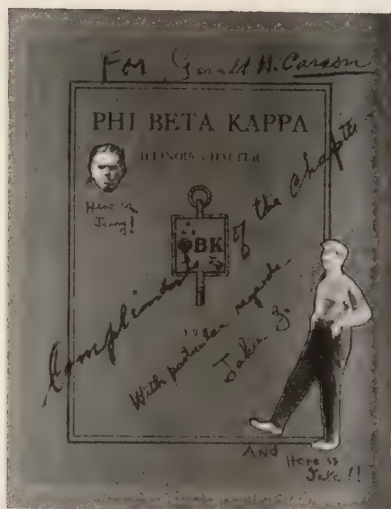 For Gerald H. Carson
PHI BETA KAPPA
ILLINOIS CHAPTER
Here is
Jerry!
ΦBK
Compliments of the Chapter
With particular regards
Jakie Z.
And
Here is
Jake!!